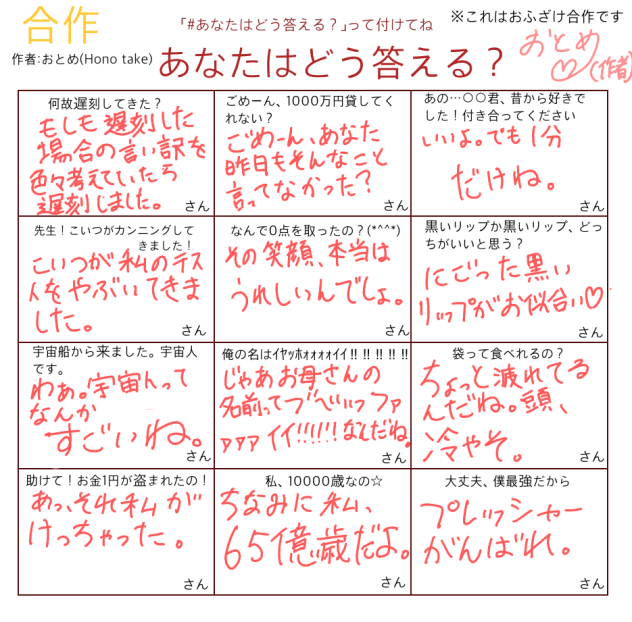 合作
「#あなたはどう答える？」って付けてね
※これはおふざけ合作です
作者:おとめ(Hono take)
あなたはどう答える？
おとめ♡(作者)
何故遅刻してきた？
もしも遅刻した
場合の言い訳を
色々考えていたら
遅刻しました。
さん
ごめーん、1000万円貸してく
れない？
ごめーん、あなた
昨日もそんなこと
言ってなかった？
さん
あの…○○君、昔から好きで
した！付き合ってください
いいよ。でも1分
だけね。
さん
先生！こいつがカンニングして
きました！
こいつが私のテス
トをやぶいてきま
した。
さん
なんで0点を取ったの？(*^^*)
その笑顔、本当は
うれしいんでしょ。
さん
黒いリップか黒いリップ、どっ
ちがいいと思う？
にごった黒い
リップがお似合い♡
さん
宇宙船から来ました。宇宙人
です。
わぁ。宇宙人って
なんか
すごいね。
さん
俺の名はｲﾔｯﾎｫｫｫｫイイ!!!!!!!!!!
じゃあお母さんの
名前ってブべいッファ
ァァァイイ!!!!!!なんだね。
さん
袋って食べれるの？
ちょっと減れてる
んだね。頭、
冷やそ。
さん
助けて！お金1円が盗まれたの！
あっ、それ私が
けっちゃった。
さん
私、10000歳なの☆
ちなみに私、
65億歳だよ。
さん
大丈夫、僕最強だから
プレッシャー
がんばれ。
さん